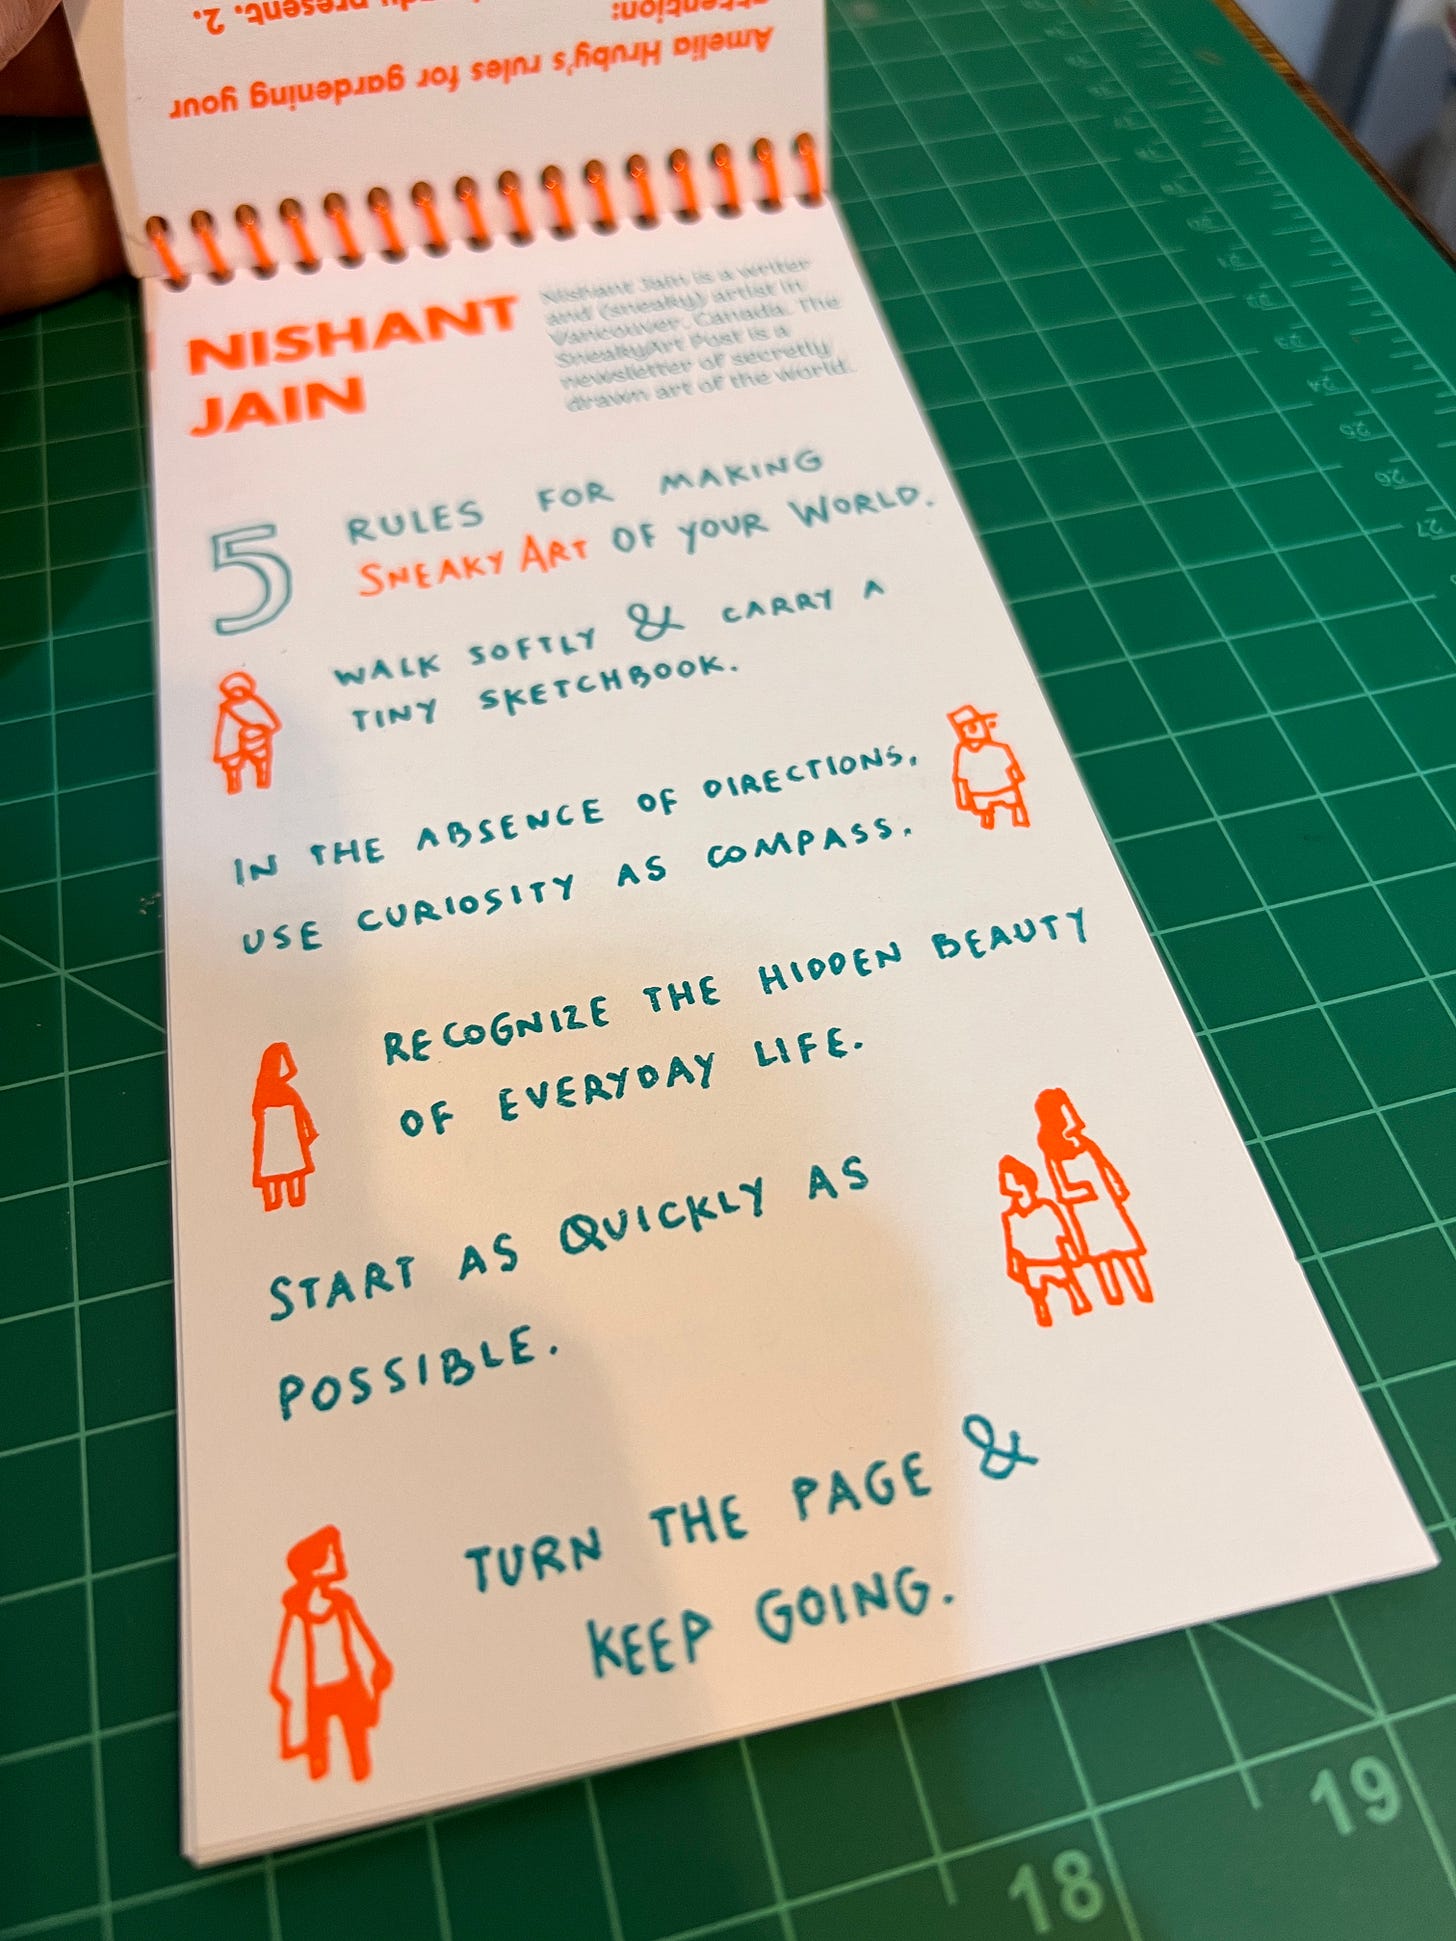 Amelia Hruby's rules for gardening your
attention:
present. 2.
NISHANT
JAIN
Nishant Jain is a writer
and (sneaky) artist in
Vancouver, Canada. The
SneakyArt Post is a
newsletter of secretly
drawn art of the world.
5 RULES FOR MAKING
SNEAKY ART OF YOUR WORLD.
WALK SOFTLY & CARRY A
TINY SKETCHBOOK.
IN THE ABSENCE OF DIRECTIONS,
USE CURIOSITY AS COMPASS.
RECOGNIZE THE HIDDEN BEAUTY
OF EVERYDAY LIFE.
START AS QUICKLY AS
POSSIBLE.
TURN THE PAGE &
KEEP GOING.
26
27
18
19